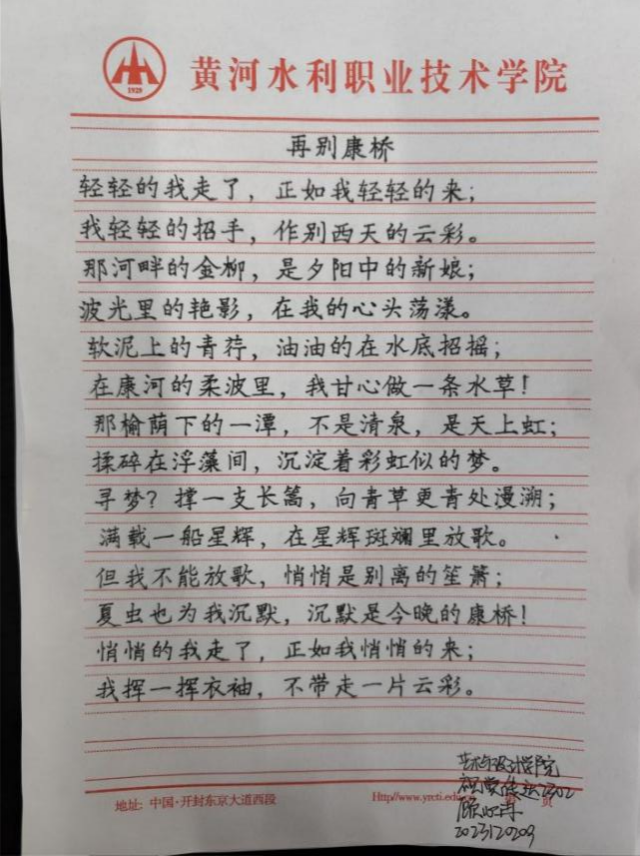 1929
黄河水利职业技术学院
再别康桥
轻轻的我走了，正如我轻轻的来；
我轻轻的招手，作别西天的云彩。
那河畔的金柳，是夕阳中的新娘；
波光里的艳影，在我的心头荡漾。
软泥上的青荇，油油的在水底招摇；
在康河的柔波里，我甘心做一条水草！
那榆荫下的一潭，不是清泉，是天上虹；
揉碎在浮藻间，沉淀着彩虹似的梦。
寻梦？撑一支长篙，向青草更青处漫溯；
满载一船星辉，在星辉斑斓里放歌。
但我不能放歌，悄悄是别离的笙箫；
夏虫也为我沉默，沉默是今晚的康桥！
悄悄的我走了，正如我悄悄的来；
我挥一挥衣袖，不带走一片云彩。
艺术与设计学院
视觉传达2302
地址：中国·开封东京大道西段
Http//www.yrcti 页
2023120209